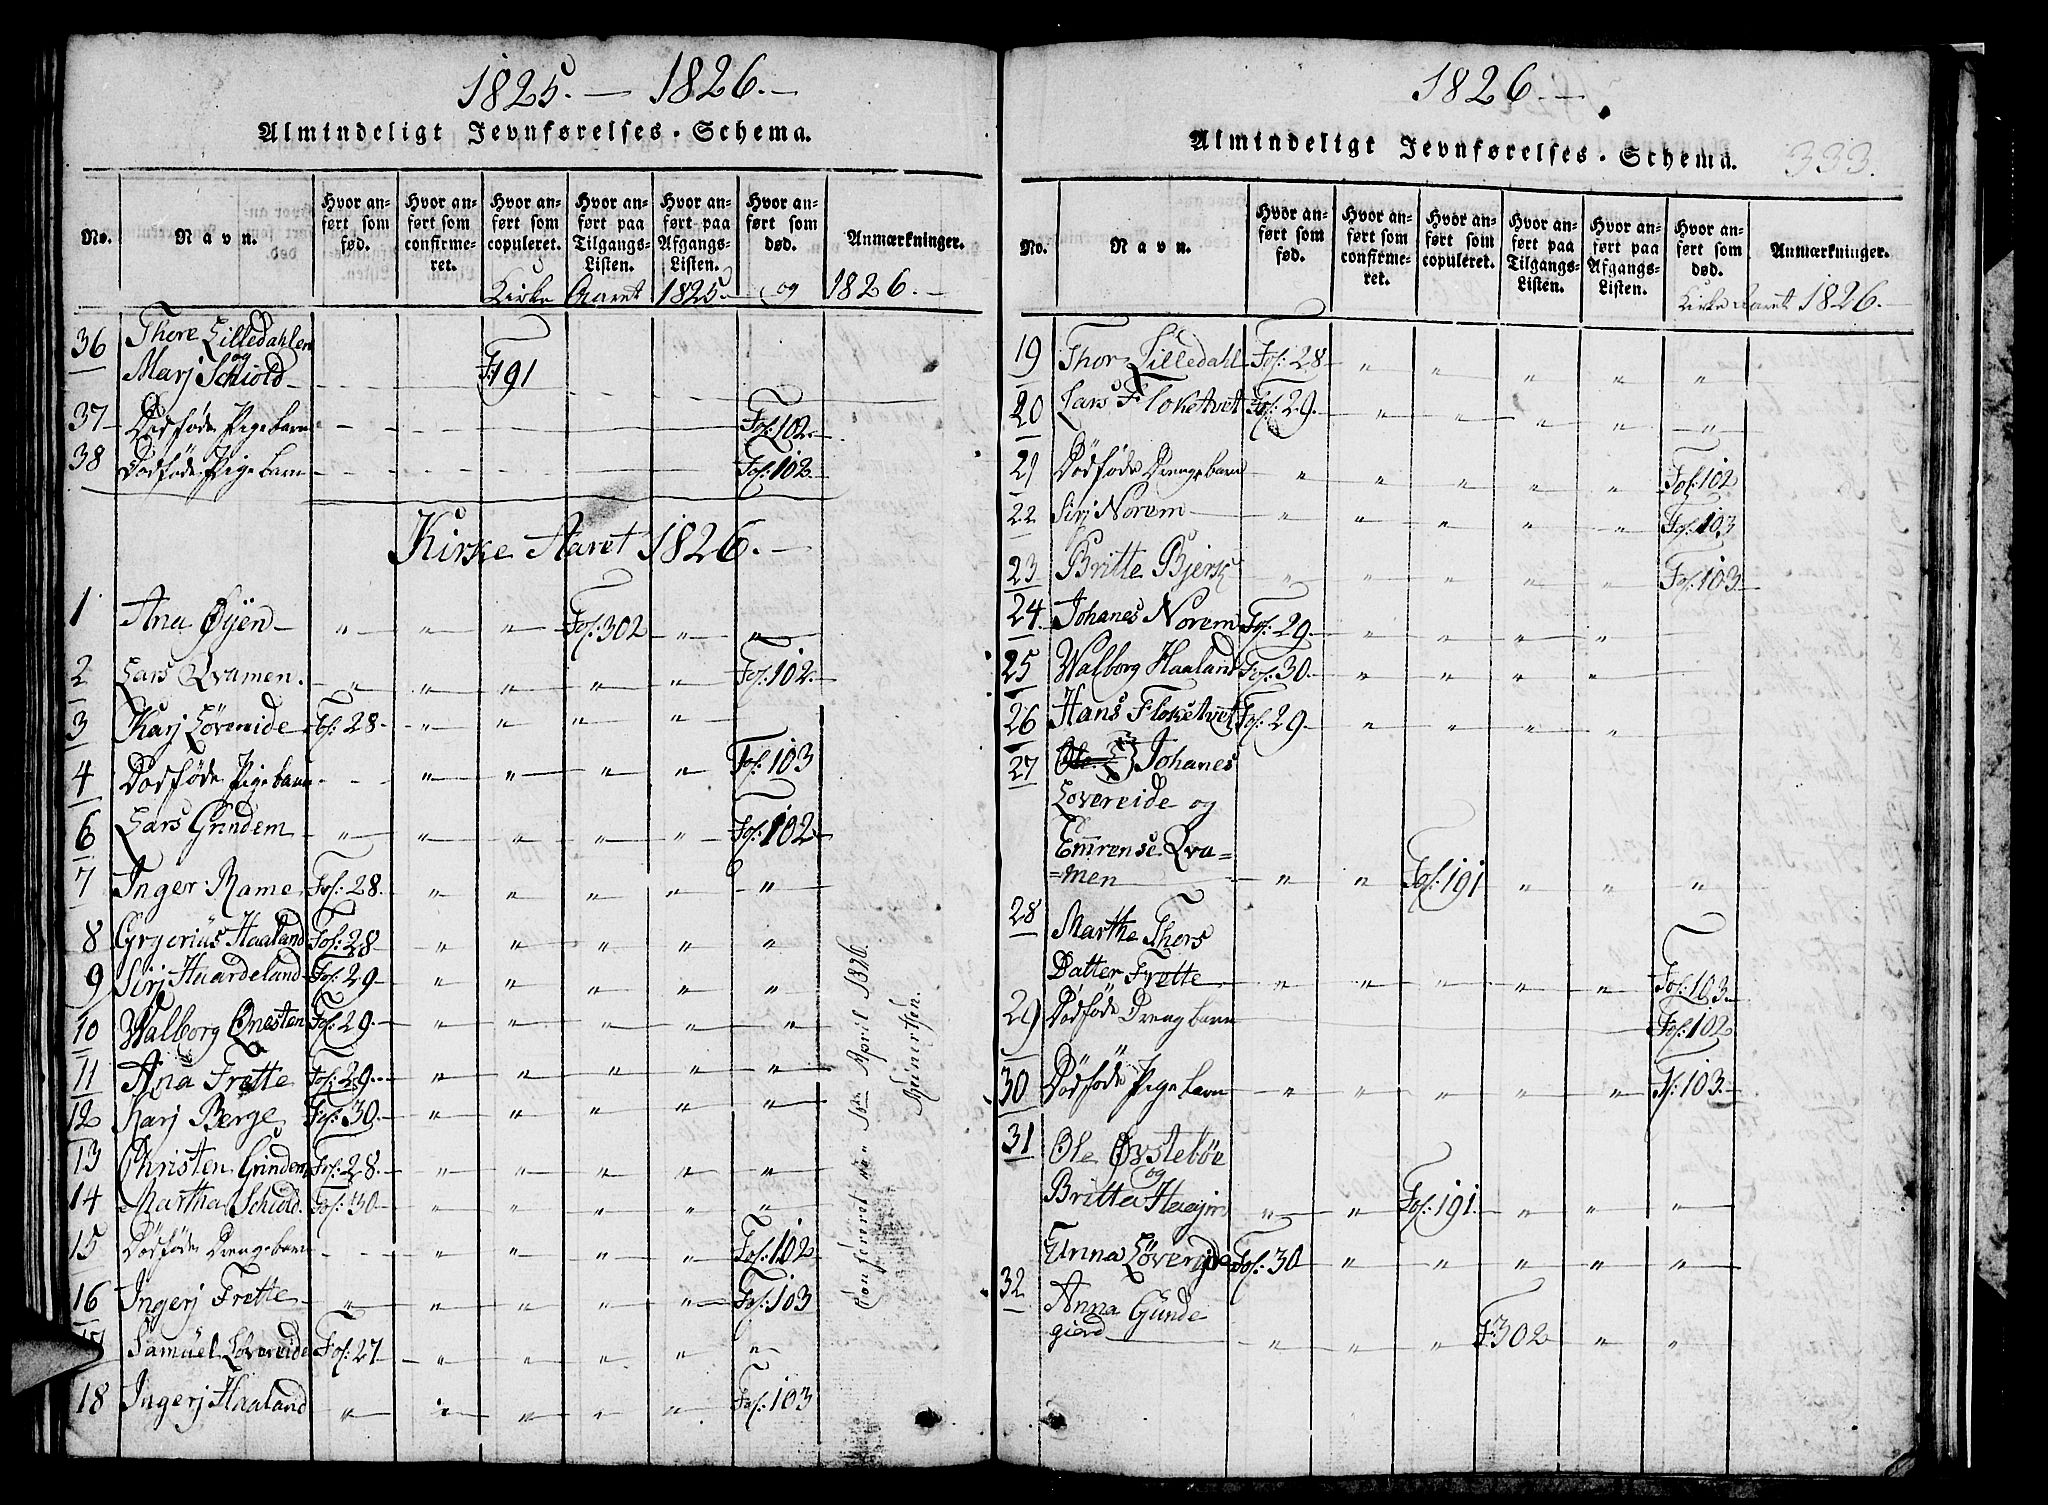 1825. — 1826. —
Almindeligt Jevnførelses-Schema.
No.
Navn.
Hvor an-ført som fød.
Hvor an-ført som confirme-ret.
Hvor an-ført som copuleret.
Hvor an-ført paa Tilgangs-Listen.
Hvor an-ført paa Afgangs-Listen.
Hvor an-ført som død.
Anmærkninger.
Kirke Aaret 1825. og 1826. —
36 Thore Lilledahlen
og
Marj Schiold — F: 191
37 Dødføde Pigebarn Fol: 102.
38 Dødføde Pigebarn Fol: 102.
Kirke Aaret 1826. —
1 Ana Øyen — " " " Fol: 302 " "
2 Lars Qvamen. " " " " " Fol: 102.
3 Karj Løvereide Fol: 28 " " " "
4 Dødføde Pigebarn " " " " Fol: 103
6 Lars Grindem " " " " " Fol: 102
7 Inger Rame Fol: 28. " " " " "
8 Grgerius Haaland Fol: 28 " " " " "
9 Sirj Huardeland Fol: 29 " " " " "
10 Walborg Ønesten Fol: 29. " " " " "
11 Ana Frette Fol: 29. " " " " "
12 Karj Berge Fol: 30. " " " " "
13 Christen Grindem Fol: 28. " " " " "
14 Martha Schiold Fol: 30 " " " " "
15 Dødføde Drengebarn " " " " Fol: 102
16 Ingerj Frette " " " " " Fol: 103
17 Samuel Løvereide Fol: 27 " " " " "
18 Ingerj Haaland " " " " " Fol: 103
April 1826.
1826. —
Almindeligt Jevnførelses-Schema.
333.
No.
Navn.
Hvor an-ført som fød.
Hvor an-ført som confirme-ret.
Hvor an-ført som copuleret.
Hvor an-ført paa Tilgangs-Listen.
Hvor an-ført paa Afgangs-Listen.
Hvor an-ført som død.
Anmærkninger.
Kirke Aaret 1826. —
19 Thor Lilledahl Fol: 28 " " " " "
20 Lars Floketvet Fol: 29. " " " " "
21 Dødføde Drengebarn " " " " " Fol: 102
22 Sirj Norem " " " " " Fol: 103
23 Britte Bjerk " " " " " Fol: 103
24. Johanes Norem Fol: 29. " " " "
25 Walborg Haaland Fol: 30. " " " "
26 Hans Floketvet Fol: 29 " " " "
27 Johanes
Lovereide og
Emrense Qva=
=men " " Fol: 191 " " "
28 Marthe Thors
Datter Frette " " " " " Fol: 103.
29 Dødføde Drengbarn Fol: 102
30 Dødføde Pigebarn " " " " " F: 103.
31 Ole Øvstebøe
og
Britta Haajm " " Fol: 191. " " "
Unna Løvereide Fol: 30 " " " " "
32 Anna Gunde
gierd " " " F: 302 " "